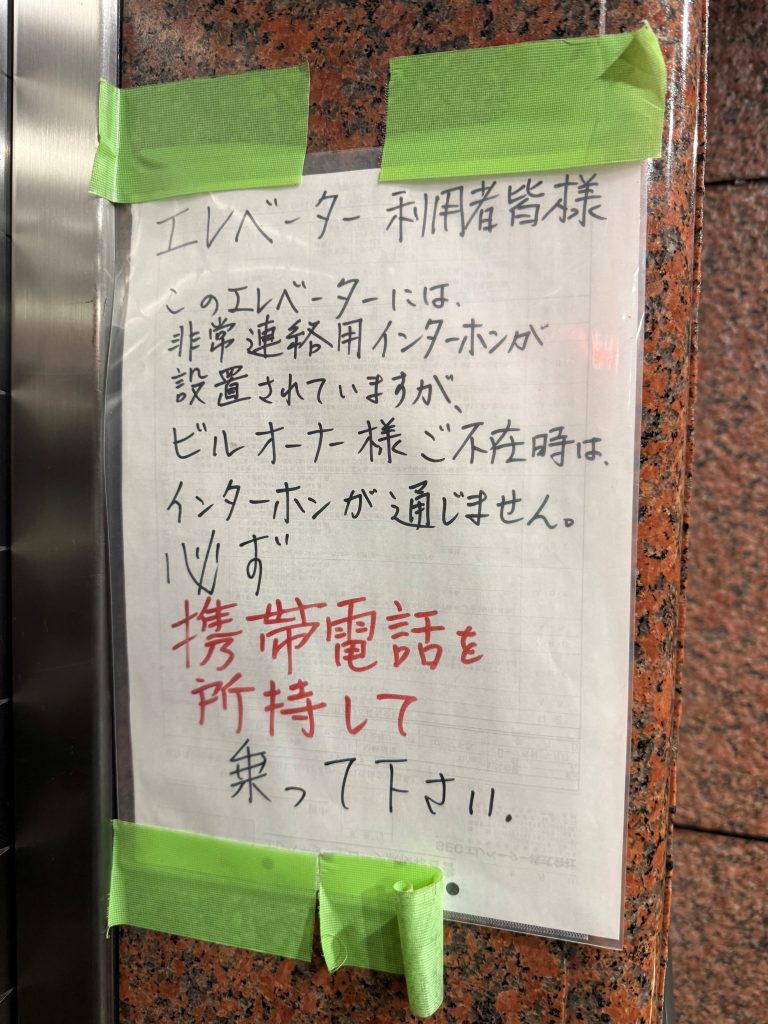 エレベーター 利用者皆様
このエレベーターには、
非常連絡用インターホンが
設置されていますが、
ビルオーナー様ご不在時は、
インターホンが通じません。
必ず
携帯電話を
所持して
乗って下さい.